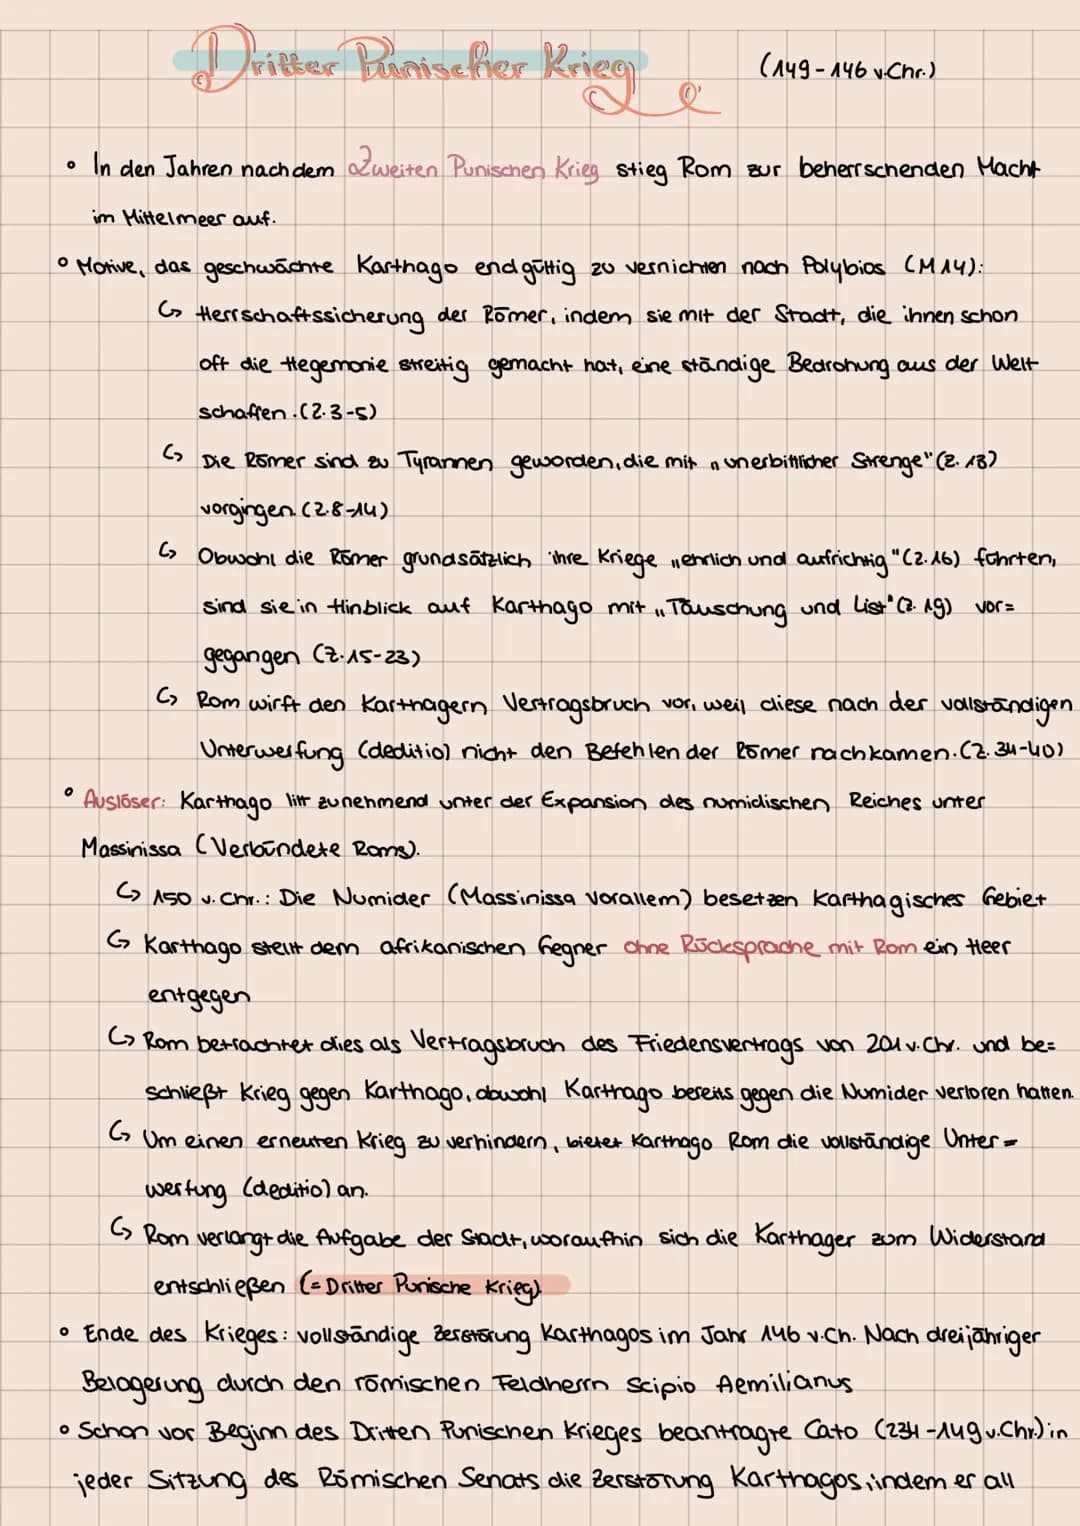 Dritter Punischer Krieg (149-146 v.Chr.)
• In den Jahren nach dem Zweiten Punischen Krieg stieg Rom zur beherrschenden Macht
im Mittelmeer auf.
• Motive, das geschwächte Karthago endgültig zu vernichten nach Polybios (M14):
↳ Herrschaftssicherung der Römer, indem sie mit der Stadt, die ihnen schon
oft die Hegemonie streitig gemacht hat, eine ständige Bedrohung aus der Welt
schaffen. (Z.3-5)
↳ Die Römer sind zu Tyrannen geworden, die mit „unerbittlicher Strenge" (Z. 13)
vorgingen. (Z.8-14)
↳ Obwohl die Römer grundsätzlich ihre Kriege „ehrlich und aufrichtig" (Z.16) führten,
sind sie in Hinblick auf Karthago mit „Täuschung und List" (Z. 19) vor=
gegangen (Z.15-23)
↳ Rom wirft den Karthagern Vertragsbruch vor, weil diese nach der vollständigen
Unterwerfung (deditio) nicht den Befehlen der Römer nachkamen. (Z.34-40)
• Auslöser: Karthago litt zunehmend unter der Expansion des numidischen Reiches unter
Massinissa (Verbündete Roms).
↳ 150 v. Chr.: Die Numider (Massinissa vorallem) besetzen Karthagisches Gebiet
↳ Karthago stellt dem afrikanischen Gegner ohne Rücksprache mit Rom ein Heer
entgegen
↳ Rom betrachtet dies als Vertragsbruch des Friedensvertrags von 201 v. Chr. und be=
schließt Krieg gegen Karthago, obwohl Karthago bereits gegen die Numider verloren hatten.
↳ Um einen erneuten Krieg zu verhindern, bietet Karthago Rom die vollständige Unter=
werfung (deditio) an.
↳ Rom verlangt die Aufgabe der Stadt, woraufhin sich die Karthager zum Widerstand
entschließen (= Dritter Punische Krieg)
• Ende des Krieges: vollständige Zerstörung Karthagos im Jahr 146 v.Ch. Nach dreijähriger
Belagerung durch den römischen Feldherrn Scipio Aemilianus
• Schon vor Beginn des Dritten Punischen Krieges beantragte Cato (234-149 v.Chr.) in
jeder Sitzung des Römischen Senats die Zerstörung Karthagos, indem er all